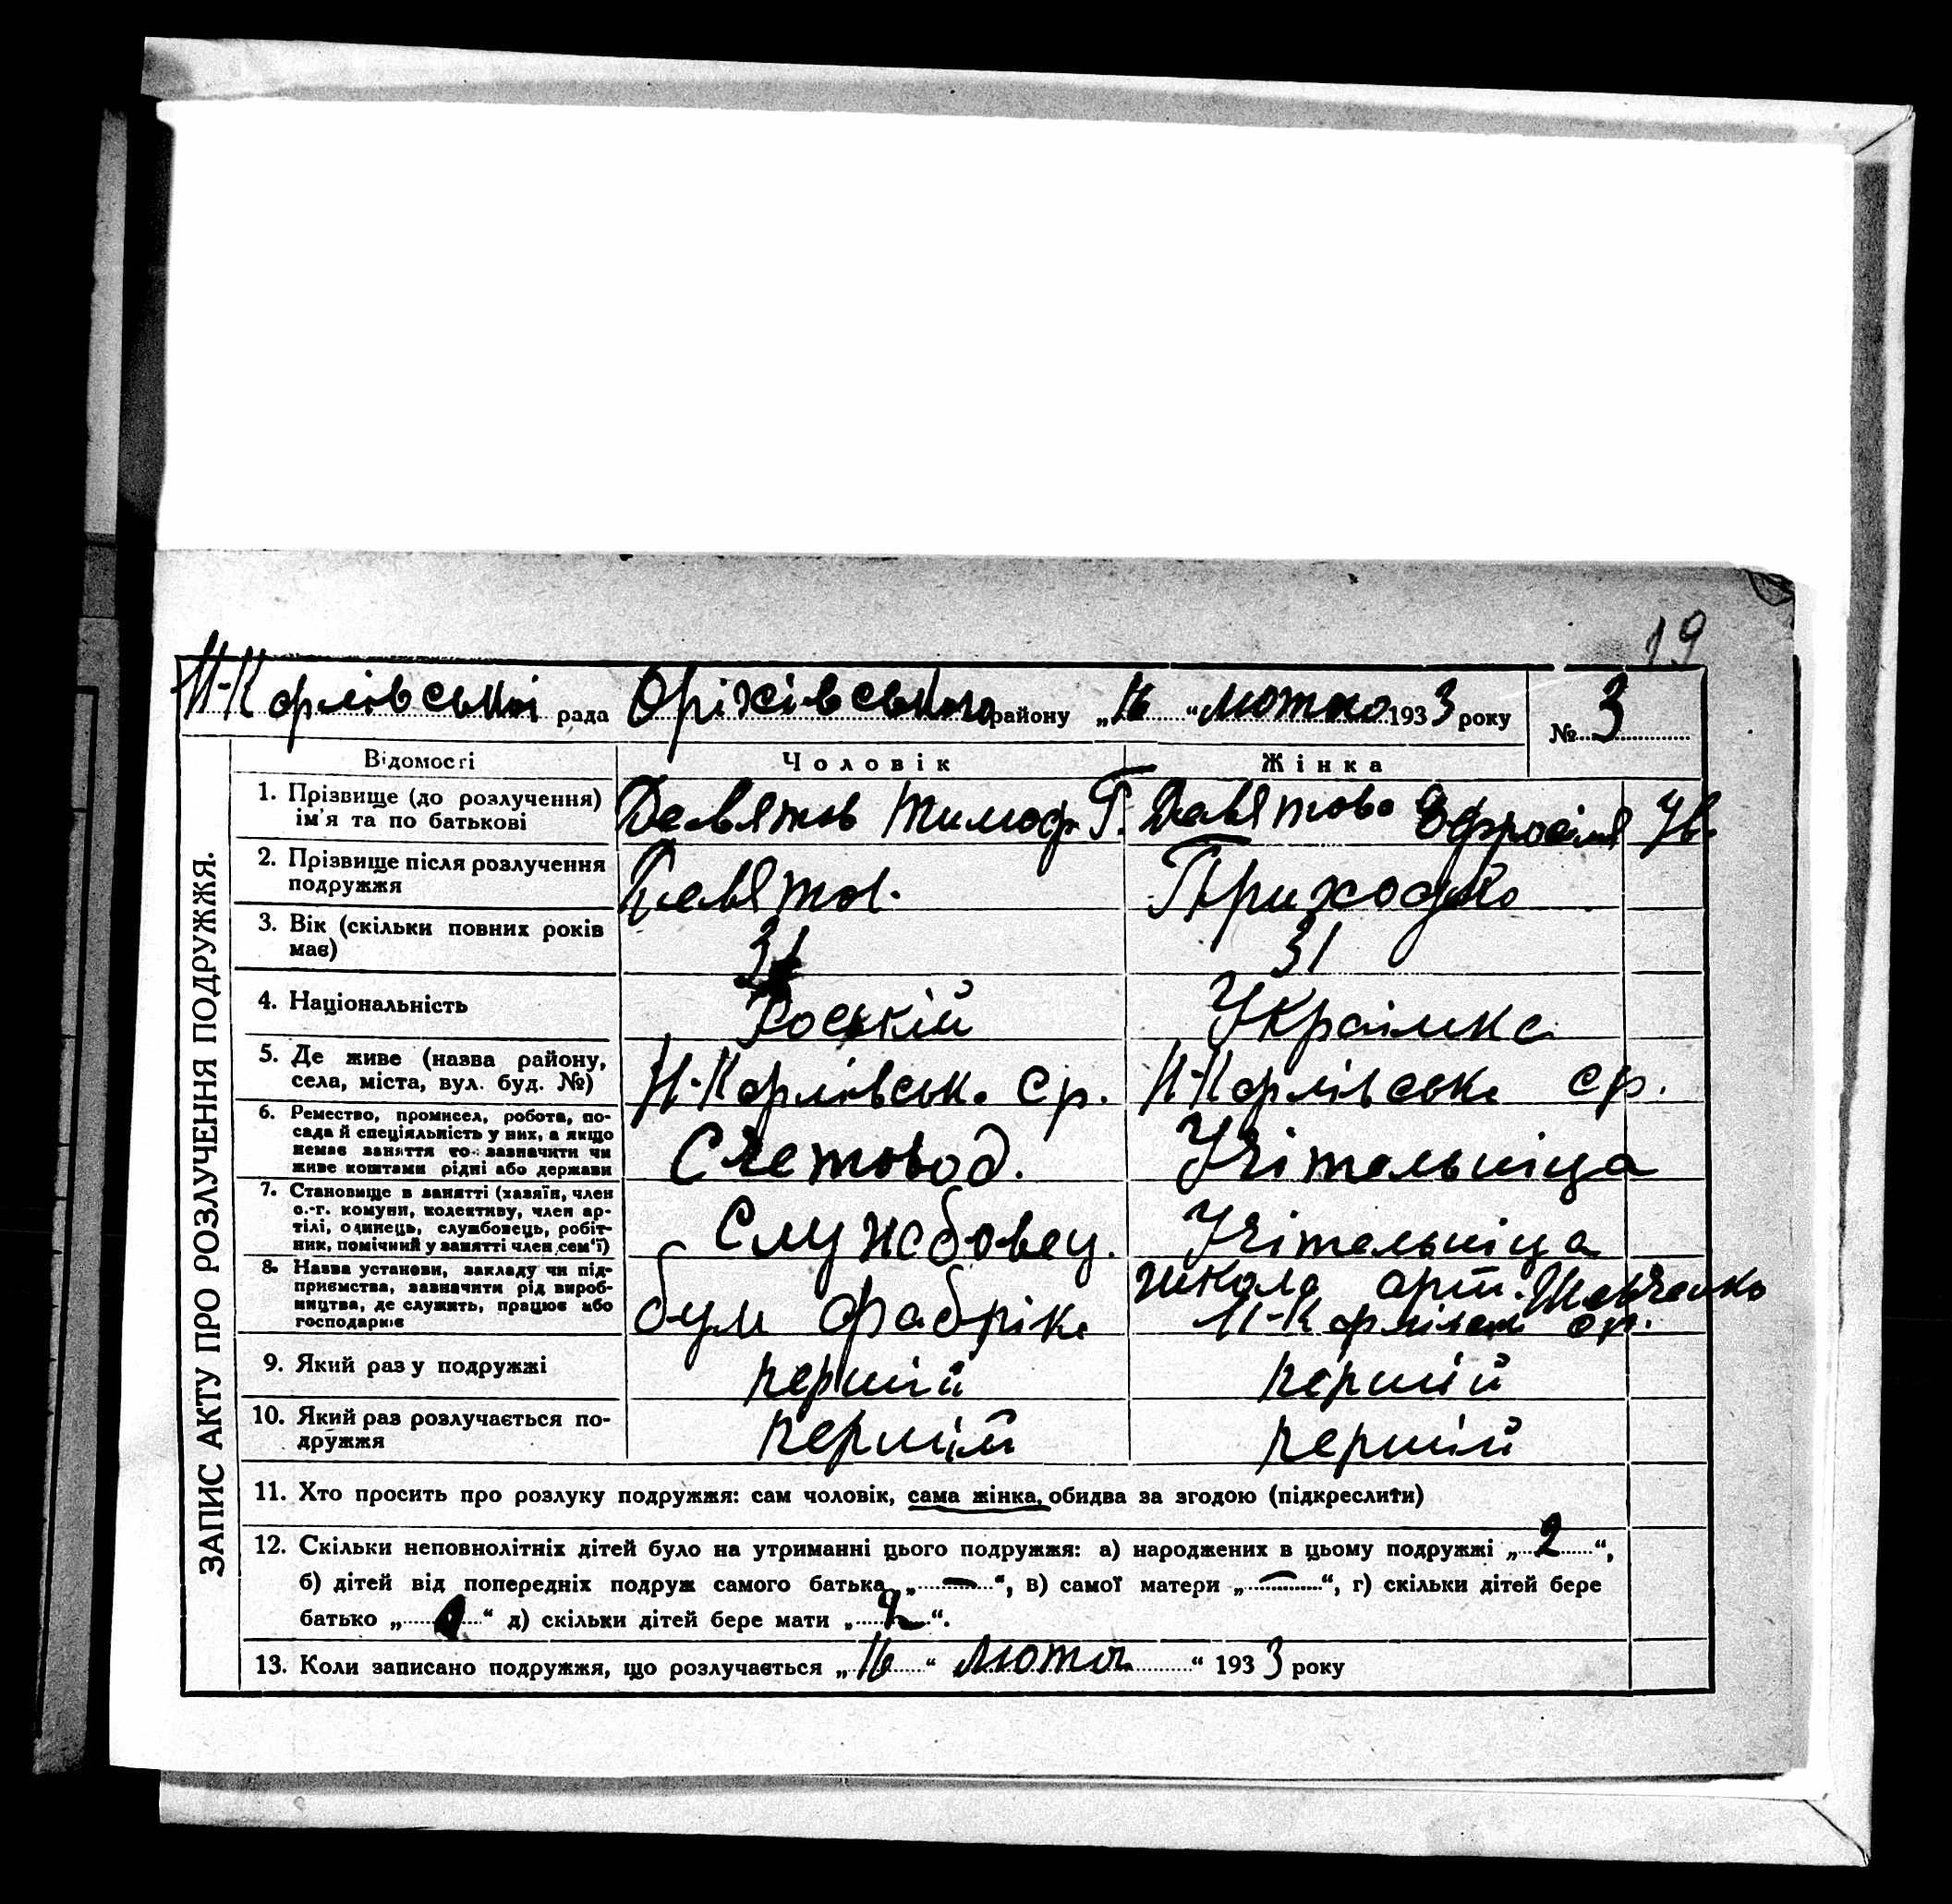 19
Н-Карлівської рада Оріхівського району „16“ лютого 1933 року № 3
ЗАПИС АКТУ ПРО РОЗЛУЧЕННЯ ПОДРУЖЖЯ.
Відомості Чоловік Жінка
1. Прізвище (до розлучення) ім'я та по батькові Девятов Тимоф. Г. Девятова Єфросинія Ів.
2. Прізвище після розлучення подружжя Девятов. Приходько
3. Вік (скільки повних років має) 31 31
4. Національність Роській Українка
5. Де живе (назва району, села, міста, вул. буд. №) Н-Карлівськ. ср. Н-Карлівська ср.
6. Ремество, промисел, робота, по-
сада й спеціяльність у них, а якщо
немає заняття то зазначити чи
живе коштами рідні або держави Счетовод. Учітельніца
7. Становище в занятті (хазяїн, член
о.-г. комуни, колективу, член ар-
тілі, одинець, службовець, робіт-
ник, помічний у занятті член сем'ї) Службовец. Учітельніца
8. Назва установи, закладу чи під-
приємства, зазначити рід вироб-
ництва, де служить, працює або
господарює фабріка школа арт. Шевченко
Н-Карлівськ ср.
9. Який раз у подружжі першій першій
10. Який раз розлучається по-
дружжя першій першій
11. Хто просить про розлуку подружжя: сам чоловік, сама жінка, обидва за згодою (підкреслити)
12. Скільки неповнолітніх дітей було на утриманні цього подружжя: а) народжених в цьому подружжі „2“,
б) дітей від попередніх подруж самого батька „—“, в) самої матери „—“, г) скільки дітей бере
батько „ “ д) скільки дітей бере мати „2“.
13. Коли записано подружжя, що розлучається „16“ лютого “ 1933 року